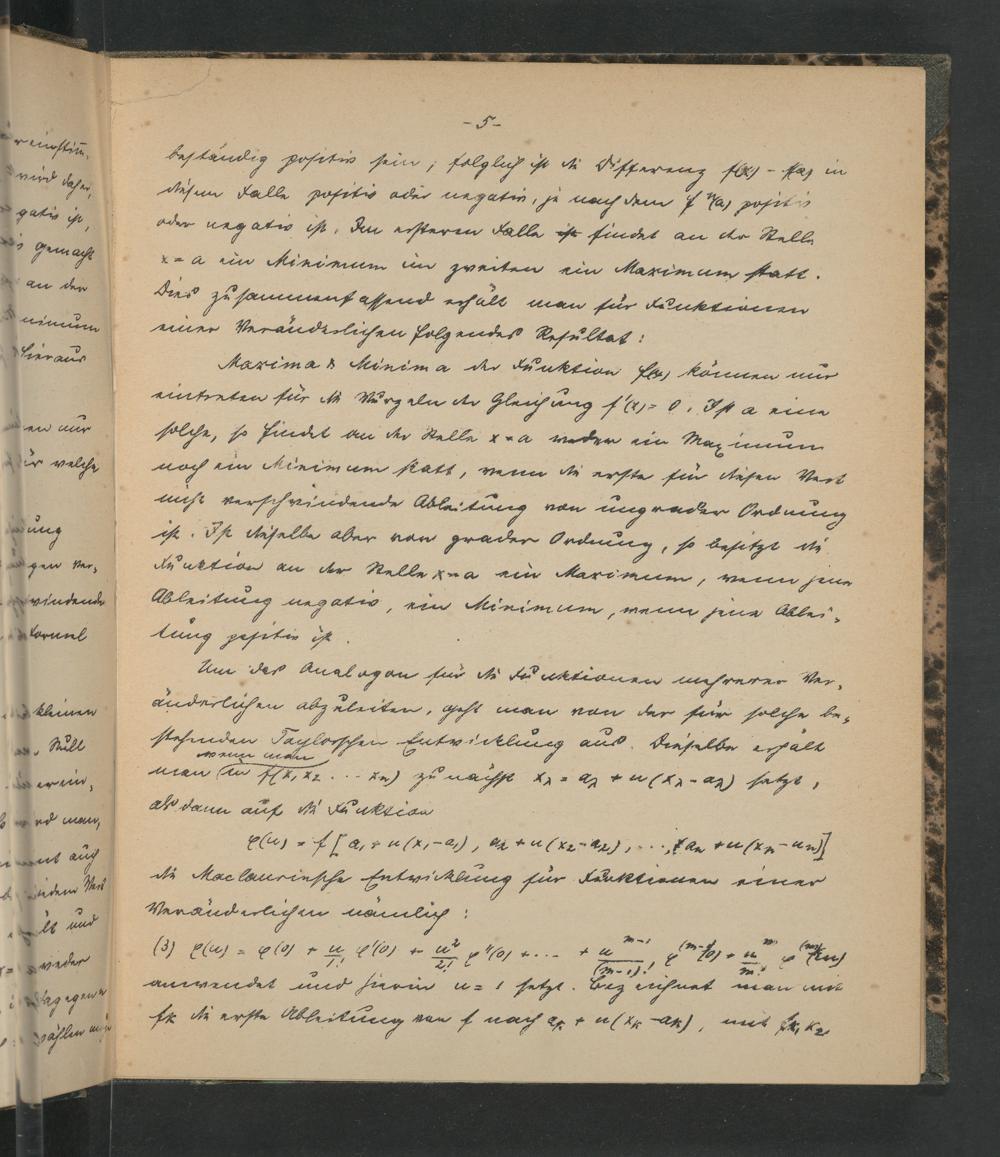 -5-
beständig positiv sein; folglich ist die Differenz f(x) - f(a) in
diesem Falle positiv oder negativ, je nachdem fⁿ(a) positiv
oder negativ ist. Im ersteren Falle ist findet an der Stelle
x = a ein Minimum im zweiten ein Maximum statt.
Dies zusammenfassend erhält man für Funktionen
einer Veränderlichen folgendes Resultat:
Maxima & Minima der Funktion f(x) können nur
eintreten für die Wurzeln der Gleichung f'(x) = 0. Ist a eine
solche, so findet an der Stelle x = a weder ein Maximum
noch ein Minimum statt, wenn die erste für diesen Wert
nicht verschwindende Ableitung von ungrader Ordnung
ist. Ist dieselbe aber von grader Ordnung, so besitzt die
Funktion an der Stelle x = a ein Maximum, wenn jene
Ableitung negativ, ein Minimum, wenn jene Ablei-
tung positiv ist.
Um das Analogon für die Funktionen mehrerer Ver-
änderlichen abzuleiten, geht man von der für solche be-
stehenden Taylorschen Entwicklung aus. Dieselbe erhält
wenn man
man in f(x₁ x₂ ... xₙ) zunächst x_λ = a_λ + u(x_λ - a_λ) setzt,
alsdann auf die Funktion
φ(u) = f[a₁ + u(x₁ - a₁), a₂ + u(x₂ - a₂), ..., aₙ + u(xₙ - aₙ)]
die Maclaurinsche Entwicklung für Funktionen einer
Veränderlichen nämlich:
(3) φ(u) = φ(0) + u/1! φ'(0) + u²/2! φ''(0) + ... + u^(m-1)/(m-1)! φ^(m-1)(0) + u^m/m! φ^(m)(εu)
anwendet und hierin u = 1 setzt. Bezeichnet man mit
f_k die erste Ableitung von f nach a_k + u(x_k - a_k), mit f_k₁k₂